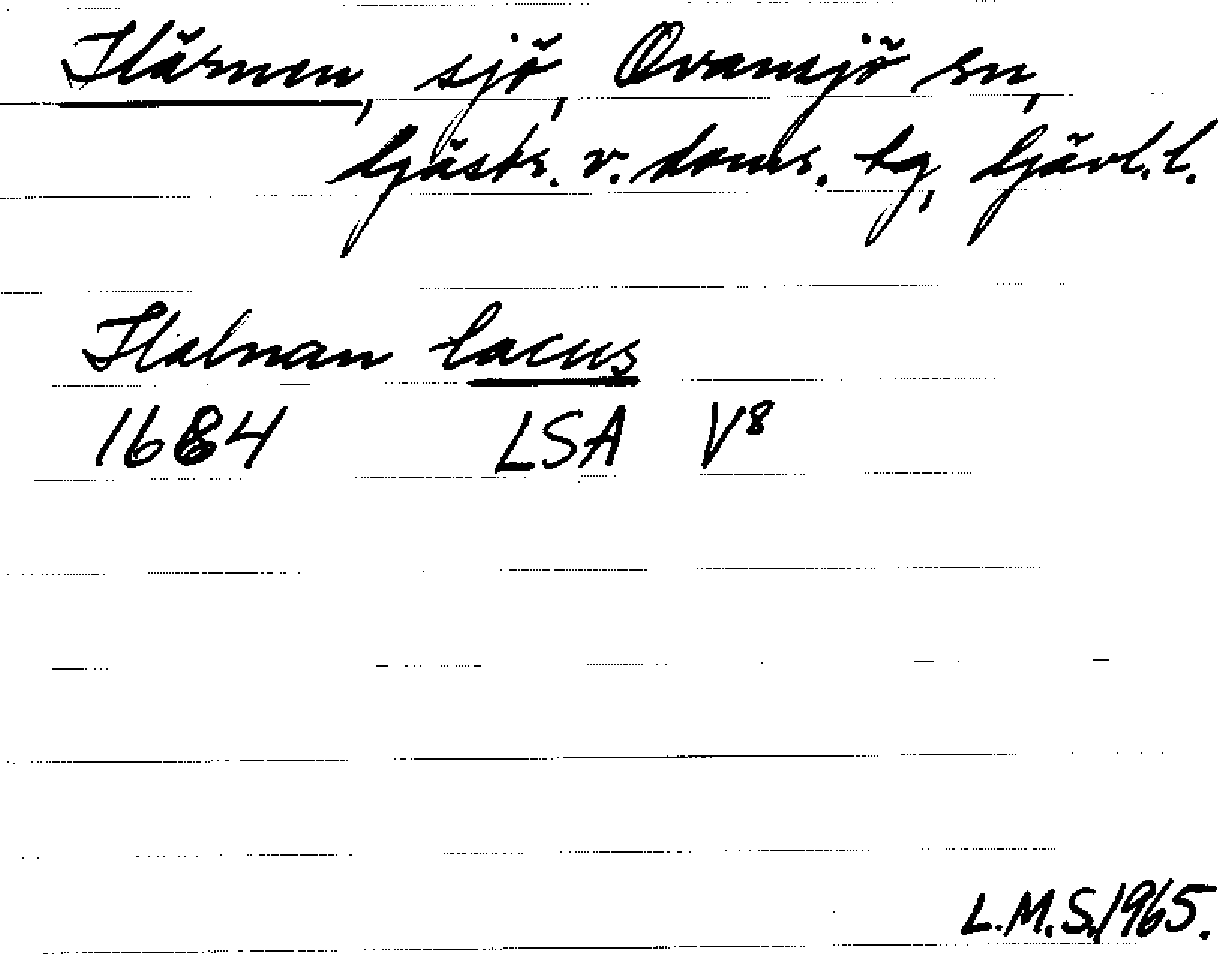 Härnen, sjö, Ovansjö sn,
Gästr. v. doms. tg, Gävl. l.
Halnan lacus
1684 LSA V8
L.M.S. 1965.